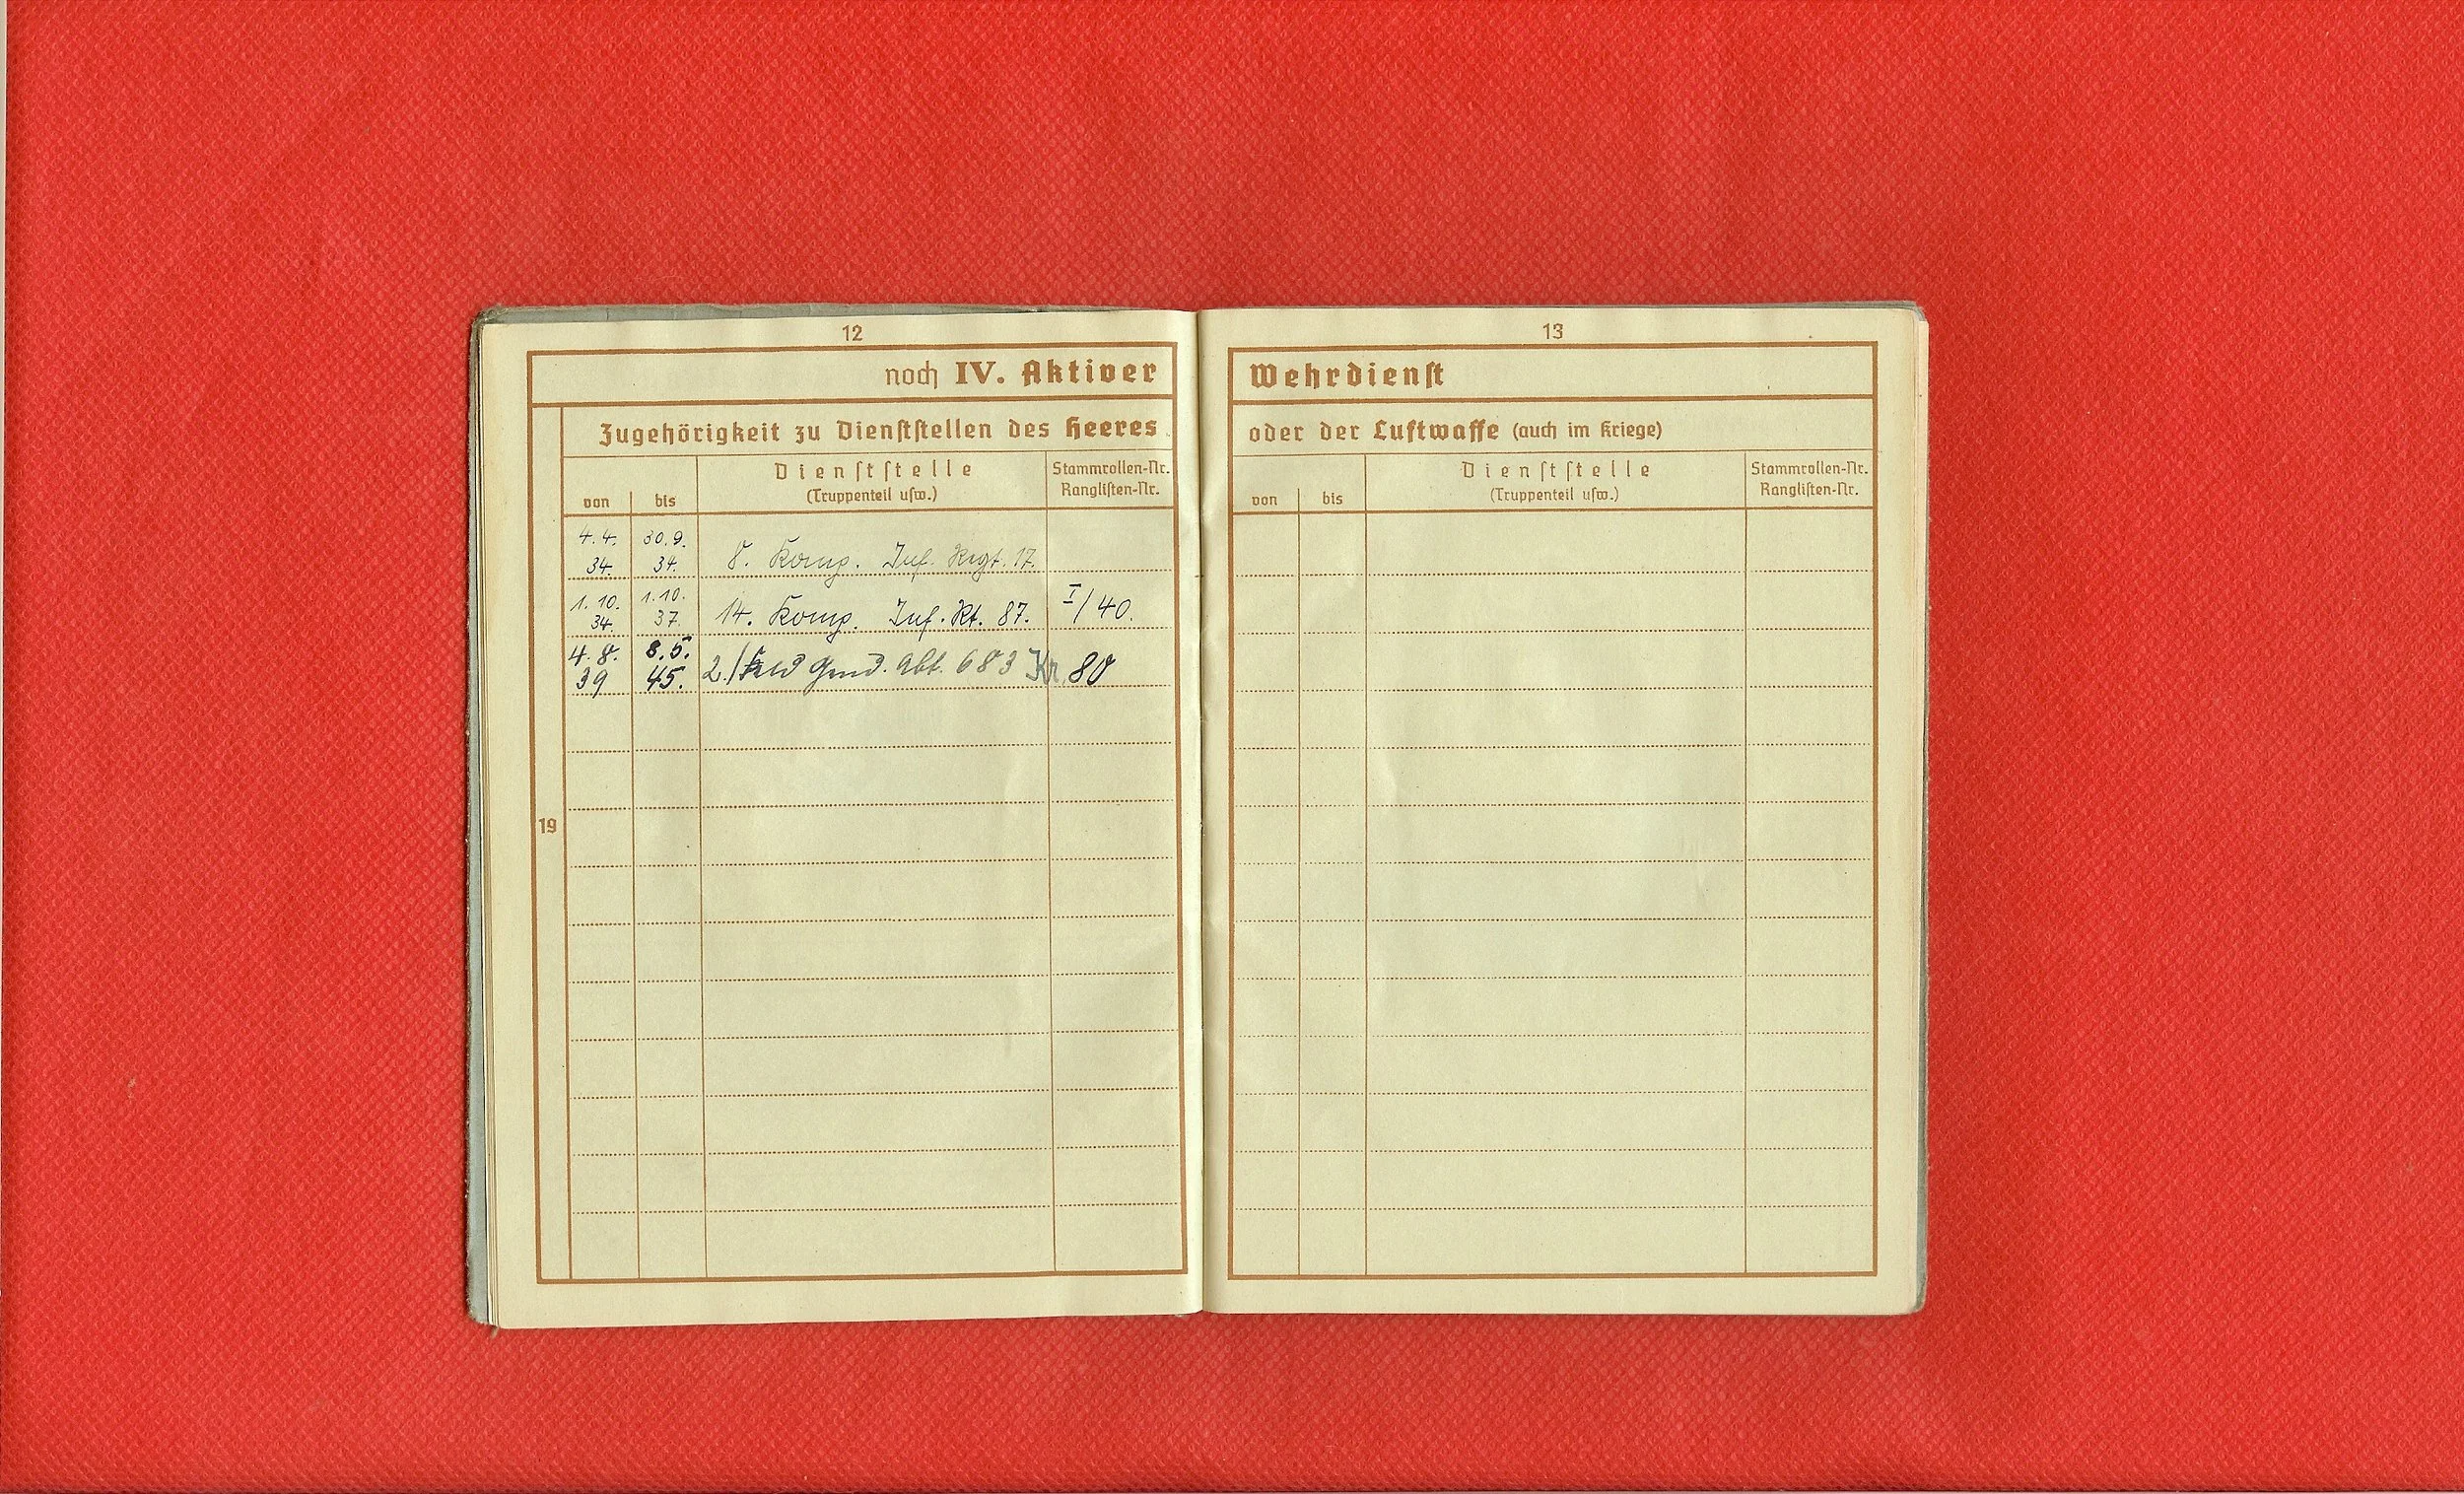 12
noch IV. Aktiver
Zugehörigkeit zu Dienststellen des Heeres
von bis Dienststelle (Truppenteil usw.) Stammrollen-Nr. Ranglisten-Nr.
4.4. 34. 30.9. 34. 8. Komp. Inf. Regt. 17.
1.10. 34. 1.10. 37. 14. Komp. Inf. Rt. 87. I/40.
4.8. 39 8.5. 45. 2./ Gend. Abt. 683 Kr. 80
19
13
Wehrdienst
oder der Luftwaffe (auch im Kriege)
von bis Dienststelle (Truppenteil usw.) Stammrollen-Nr. Ranglisten-Nr.